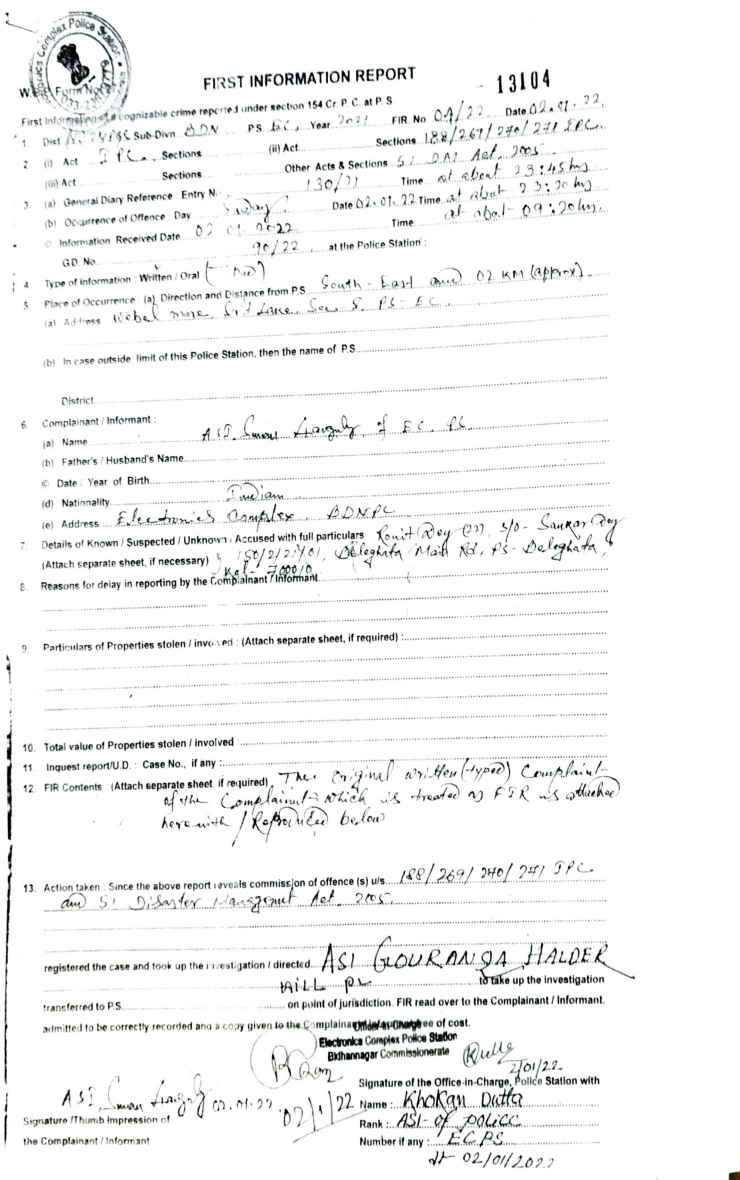 Complex Police Station
W Form No
FIRST INFORMATION REPORT
- 13104
First Information of a cognizable crime reported under section 154 Cr. P. C. at P. S.
1 Dist Sub-Divn. BDN P.S. EC, Year 2021 FIR No 04/22 Date 02.01.22
2 (i) Act IPC Sections (ii) Act Sections 188/269/270/271 IPC
(iii) Act Sections Other Acts & Sections 51 DM Act, 2005
3 (a) General Diary Reference : Entry N 130/21 Time at about 23:45 hrs
(b) Occurrence of Offence : Day Sunday Date 02.01.22 Time at about
© Information Received Date 02 01 2022 Time at about 09:20 hrs,
G.D. No. 90/22 at the Police Station :
4. Type of Information : Written / Oral
5. Place of Occurrence (a) Direction and Distance from P.S. South-East and 02 KM (approx)
(a) Address Webel more, Lane, Sec 5, PS-EC
(b) In case outside limit of this Police Station, then the name of P.S.
District
6. Complainant / Informant :
(a) Name ASI of EC PS
(b) Father's / Husband's Name
© Date / Year of Birth
(d) Nationality Indian
(e) Address Electronics Complex, BDNPC
7. Details of Known / Suspected / Unknown / Accused with full particulars Ronit Dey (22), S/O- Sankar Dey
(Attach separate sheet, if necessary) Beleghata Main Rd, PS- Beleghata,
Kol- 700010
8. Reasons for delay in reporting by the Complainant / Informant
9. Particulars of Properties stolen / involved : (Attach separate sheet, if required) :
10. Total value of Properties stolen / involved
11. Inquest report/U.D. : Case No., if any :
12. FIR Contents : (Attach separate sheet if required) The Original written (typed) Complaint
of the Complainant which is treated as FIR is attached
herewith / Reproduced below
13. Action taken : Since the above report reveals commission of offence (s) u/s 188/269/270/271 IPC
and 51 Disaster Management Act, 2005.
registered the case and took up the investigation / directed ASI GOURANGA HALDER
WILL to take up the investigation
transferred to P.S. on point of jurisdiction. FIR read over to the Complainant / Informant.
admitted to be correctly recorded and a copy given to the Complainant free of cost.
Officer-in-Charge
Electronics Complex Police Station
Bidhannagar Commissionerate
2/01/22
Signature of the Office-in-Charge, Police Station with
ASI 02.01.22
02/1/22
Name : Khokan Dutta
Signature /Thumb Impression of
Rank : ASI- of police
the Complainant / Informant
Number if any : ECPS
dt- 02/01/2022